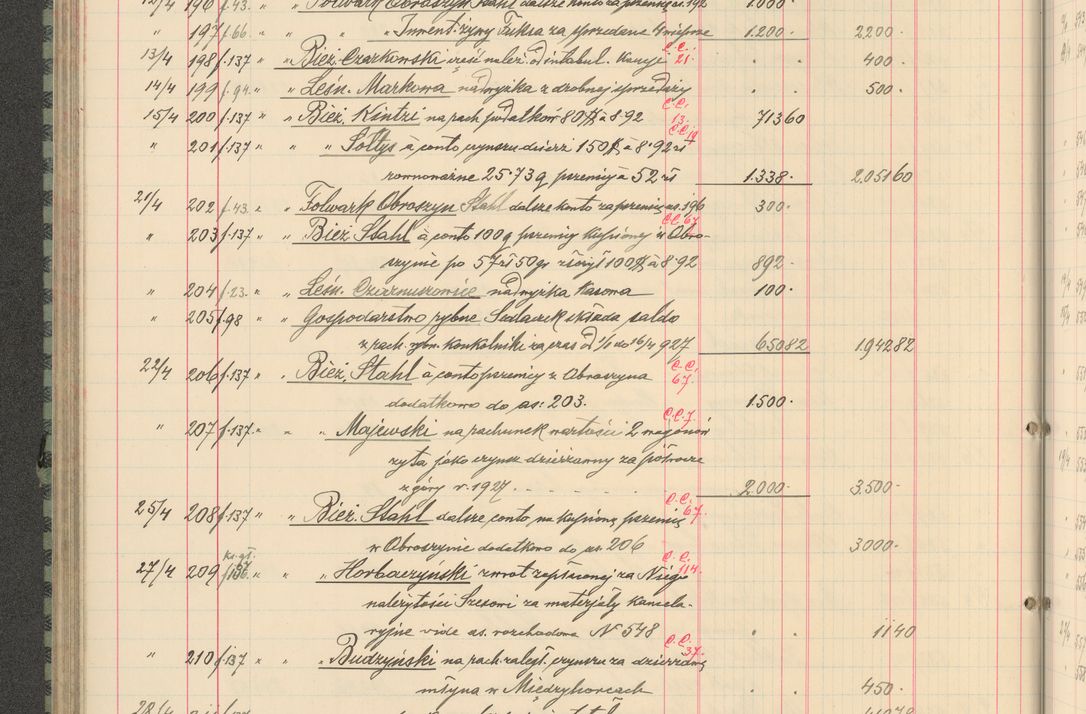 12/4 196 f.43. " " Folwark Obroszyn Stahl dalsze konto za pszenicę as. 192 1.000·
" 197 f.66. " " " Inwent. żywy Fuksa za sprzedane 4 1.200· 2200·
13/4 198 f.137 " " Bież. Czarkowski część należ. od intabul. Kaucji C.C. 21. · · 400·
14/4 199 f.94. " " Leśn. Markowa nadwyżka z drobnej sprzedaży · · 500·
15/4 200 f.137 " " Bież. Kintzi na rach. podatków 80 $ à 8·92 C.C. 13. 71360
" 201 f.137 " " " Sołtys à conto czynszu dzierż 150 $ à 8·92 zł C.C.
równoważne 25·73 q pszenicy à 52 zł 1.338· 205160
21/4 202 f.43. " " Folwark Obroszyn Stahl dalsze konto za pszenicę as. 196 300·
" 203 f.137 " " Bież Stahl à conto 100 q pszenicy kupionej w Obro- C.C. 67.
szynie po 57 zł 50 gr złożył 100 $ à 8·92 892·
" 204 f.23. " " Leśn. Czarnuszowice nadwyżka kasowa 100·
" 205 f.98 " " Gospodarstwo rybne Sedlaczek składa saldo
z rach. rybn. Konkolniki za czas od do 16/4 927 65082 194282
22/4 206 f.137 " " Bież. Stahl à conto pszenicy z Obroszyna C.C. 67.
dodatkowo do as: 203. 1.500·
" 207 f.137. " " " Majewski na rachunek wartości 2 wagonów C.C.7.
żyta jako czynsz dzierżawny za półrocze
z góry r. 1927 . . . . . . 2.000· 3.500·
25/4 208 f.137 " " Bież. Stahl dalsze conto na kupioną pszenicę C.C. 67.
w Obroszynie dodatkowo do as. 206 3000·
27/4 209 " " " Horbaczyński zwrot zapłaconej za Niego C.C. 114.
należytości Szesowi za materjały kancela-
ryjne vide as. rozchodowa N° 548 · · 1140
" 210 f.137 " " " Budzyński na rach. zaległ. czynszu za dzierżawę C.C. 37.
młyna w Międzyhorcach · · 450·
28/4